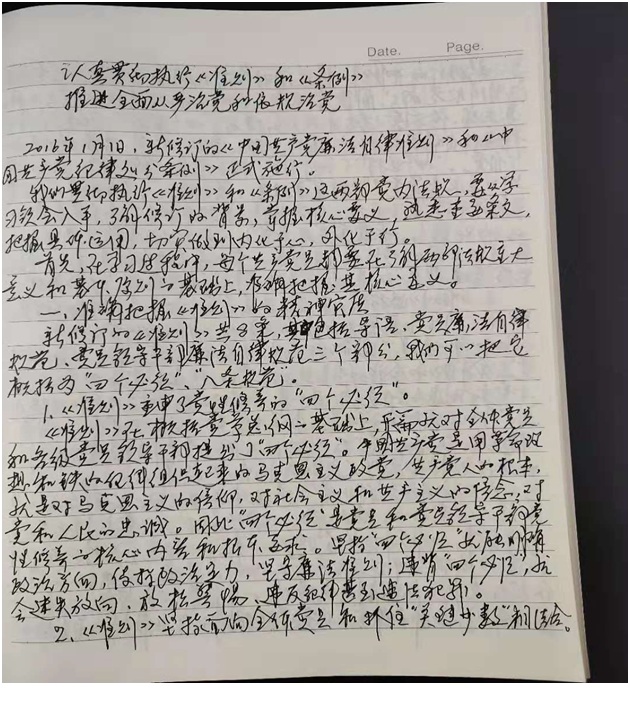 Date.    Page.
认真贯彻执行《准则》和《条例》
推进全面从严治党和依规治党
2016年1月1日,新修订的《中国共产党廉洁自律准则》和《中
国共产党纪律处分条例》正式施行。
我们贯彻执行《准则》和《条例》这两部党内法规,要从学
习领会入手,了解修订的背景,掌握核心要义,熟悉主要条文,
把握具体运用,切实做到内化于心,外化于行。
首先,在学习过程中,每个共产党员都要在了解两部法规重大
意义和基本原则的基础上,准确把握其核心要义。
一、准确把握《准则》的精神实质
新修订的《准则》共8条,包括导语、党员廉洁自律
规范、党员领导干部廉洁自律规范三个部分,我们可以把它
概括为“四个必须”、“八条规范”。
1.《准则》重申了党性修养的“四个必须”。
《准则》在概括党章总纲的基础上,开篇就对全体党员
和各级党员领导干部提出了“四个必须”。中国共产党是用革命理
想和铁的纪律组织起来的马克思主义政党,共产党人的根本,
就是对马克思主义的信仰,对社会主义和共产主义的信念,对
党和人民的忠诚。因此“四个必须”是党员和党员领导干部党
性修养的核心内容和根本要求。坚持“四个必须”就能明确
政治方向,保持政治定力,坚守廉洁准则;违背“四个必须”,就
会迷失方向、放松警惕、违反纪律甚到违法犯罪。
2.《准则》坚持面向全体党员和抓住“关键少数”相结合。